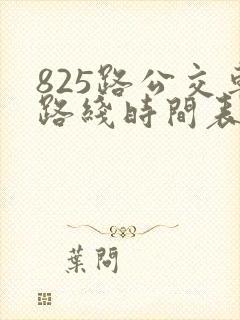 825路公交車
路綫時間表
葉問